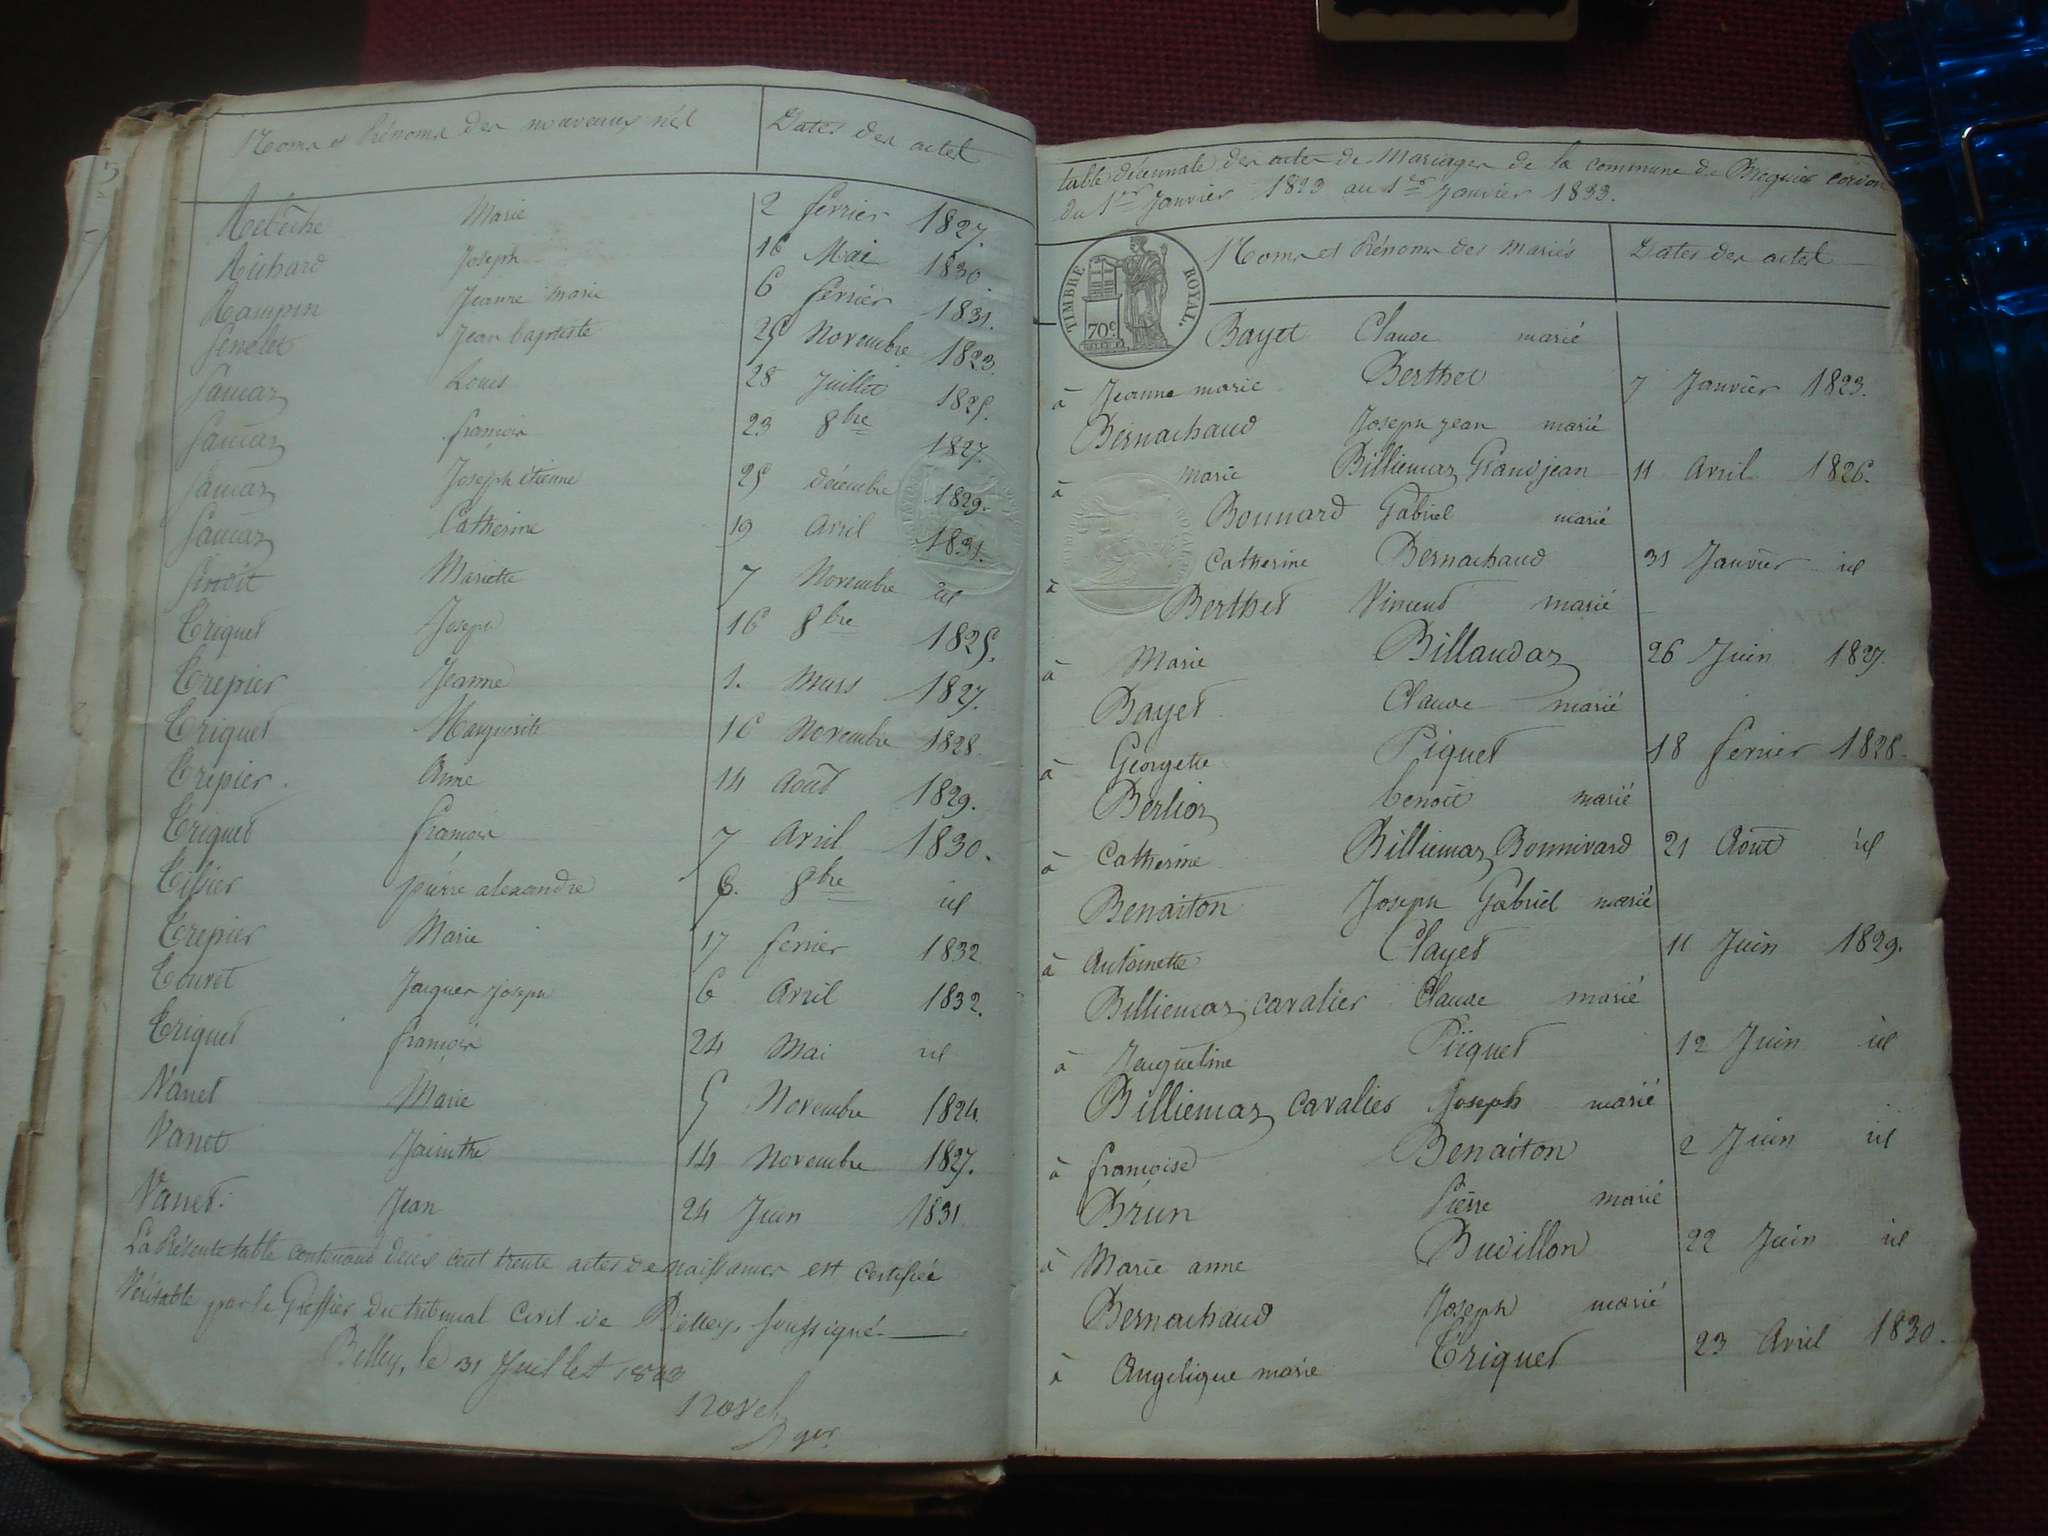 Noms et Prénoms des nouveaux nés Dates des actes
Rebêche Marie 2 fevrier 1827.
Richard Joseph 16 Mai 1830
Rampin Jeanne marie 6 fevrier 1831.
Senelet Jean baptiste 25 Novembre 1823.
Samaz Louis 28 Juillet 1825.
Samaz françois 23 8bre 1827.
Samaz Joseph étienne 25 décembre 1829.
Samaz Catherine 19 avril 1831.
Mariette 7 Novembre id
Triquet Joseph 16 8bre 1825.
Trepier Jeanne 1. Mars 1827.
Triquet Marguerite 16 Novembre 1828.
Trepier Anne 14 Août 1829.
Triquet françois 7 Avril 1830.
Tissier pierre alexandre 6. 8bre id
Trepier Marie 17 fevrier 1832
Touret Jacques Joseph 6 Avril 1832.
Triquet françois 24 Mai id
Vanet Marie 5 Novembre 1824.
Vanet Jacinthe 14 Novembre 1827.
Vanet Jean 24 Juin 1831
La Présente table contenant deux cent trente actes de naissances est certifiée
Véritable par le Greffier du tribunal Civil de Belley, soussigné
Belley, le 31 Juillet 1833
table décennale des actes de Mariages de la commune de Bregnier cordon
du 1er Janvier 1823 au 1er Janvier 1833.
TIMBRE ROYAL.
70c
Noms et Prénoms des mariés Dates des actes
Bayet Claude marié
à Jeanne marie Berthet 7 Janvier 1823.
Bernachaud Joseph jean marié
à marie Billiemaz Grandjean 11 Avril 1826.
Bonnard Gabriel marié
à Catherine Bernachaud 31 Janvier id
Berthet Vincent marié
à Marie Billaudaz 26 Juin 1827.
Bayet Claude marié
à Géorgette Piquet 18 fevrier 1828.
Berlioz benoit marié
à Catherine Billiemaz Bonnivard 21 Août id
Benaiton Joseph Gabriel marié
à Antoinette Clayet 11 Juin 1829.
Billiemaz cavalier Claude marié
à Jacqueline Piquet 12 Juin id
Billiemaz cavalier Joseph marié
à françoise Benaiton 2 Juin id
Brun Pierre marié
à Marie anne Buvillon 22 Juin id
Bernachaud Joseph marié
à Angelique marie Triquet 23 Avril 1830.